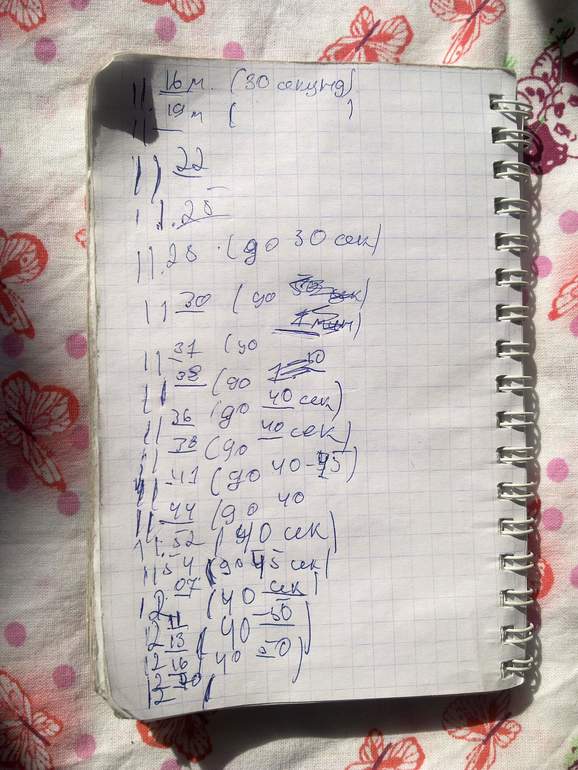 11 16 м. (30 секунд)
11 19 м ( )
11 22
11.25
11.28 (до 30 сек)
11 30 (до
11 37 (до
11 38 (до
11 36 (до 40 сек)
11 38 (до 40 сек)
11 41 (до 40-45)
11 44 (до 40
11.52 (40 сек)
11 54 (до 45 сек)
12 07 (40 сек)
12 11 ( 40 -50)
12 13
12 16 ( 40 50)
12 20 (